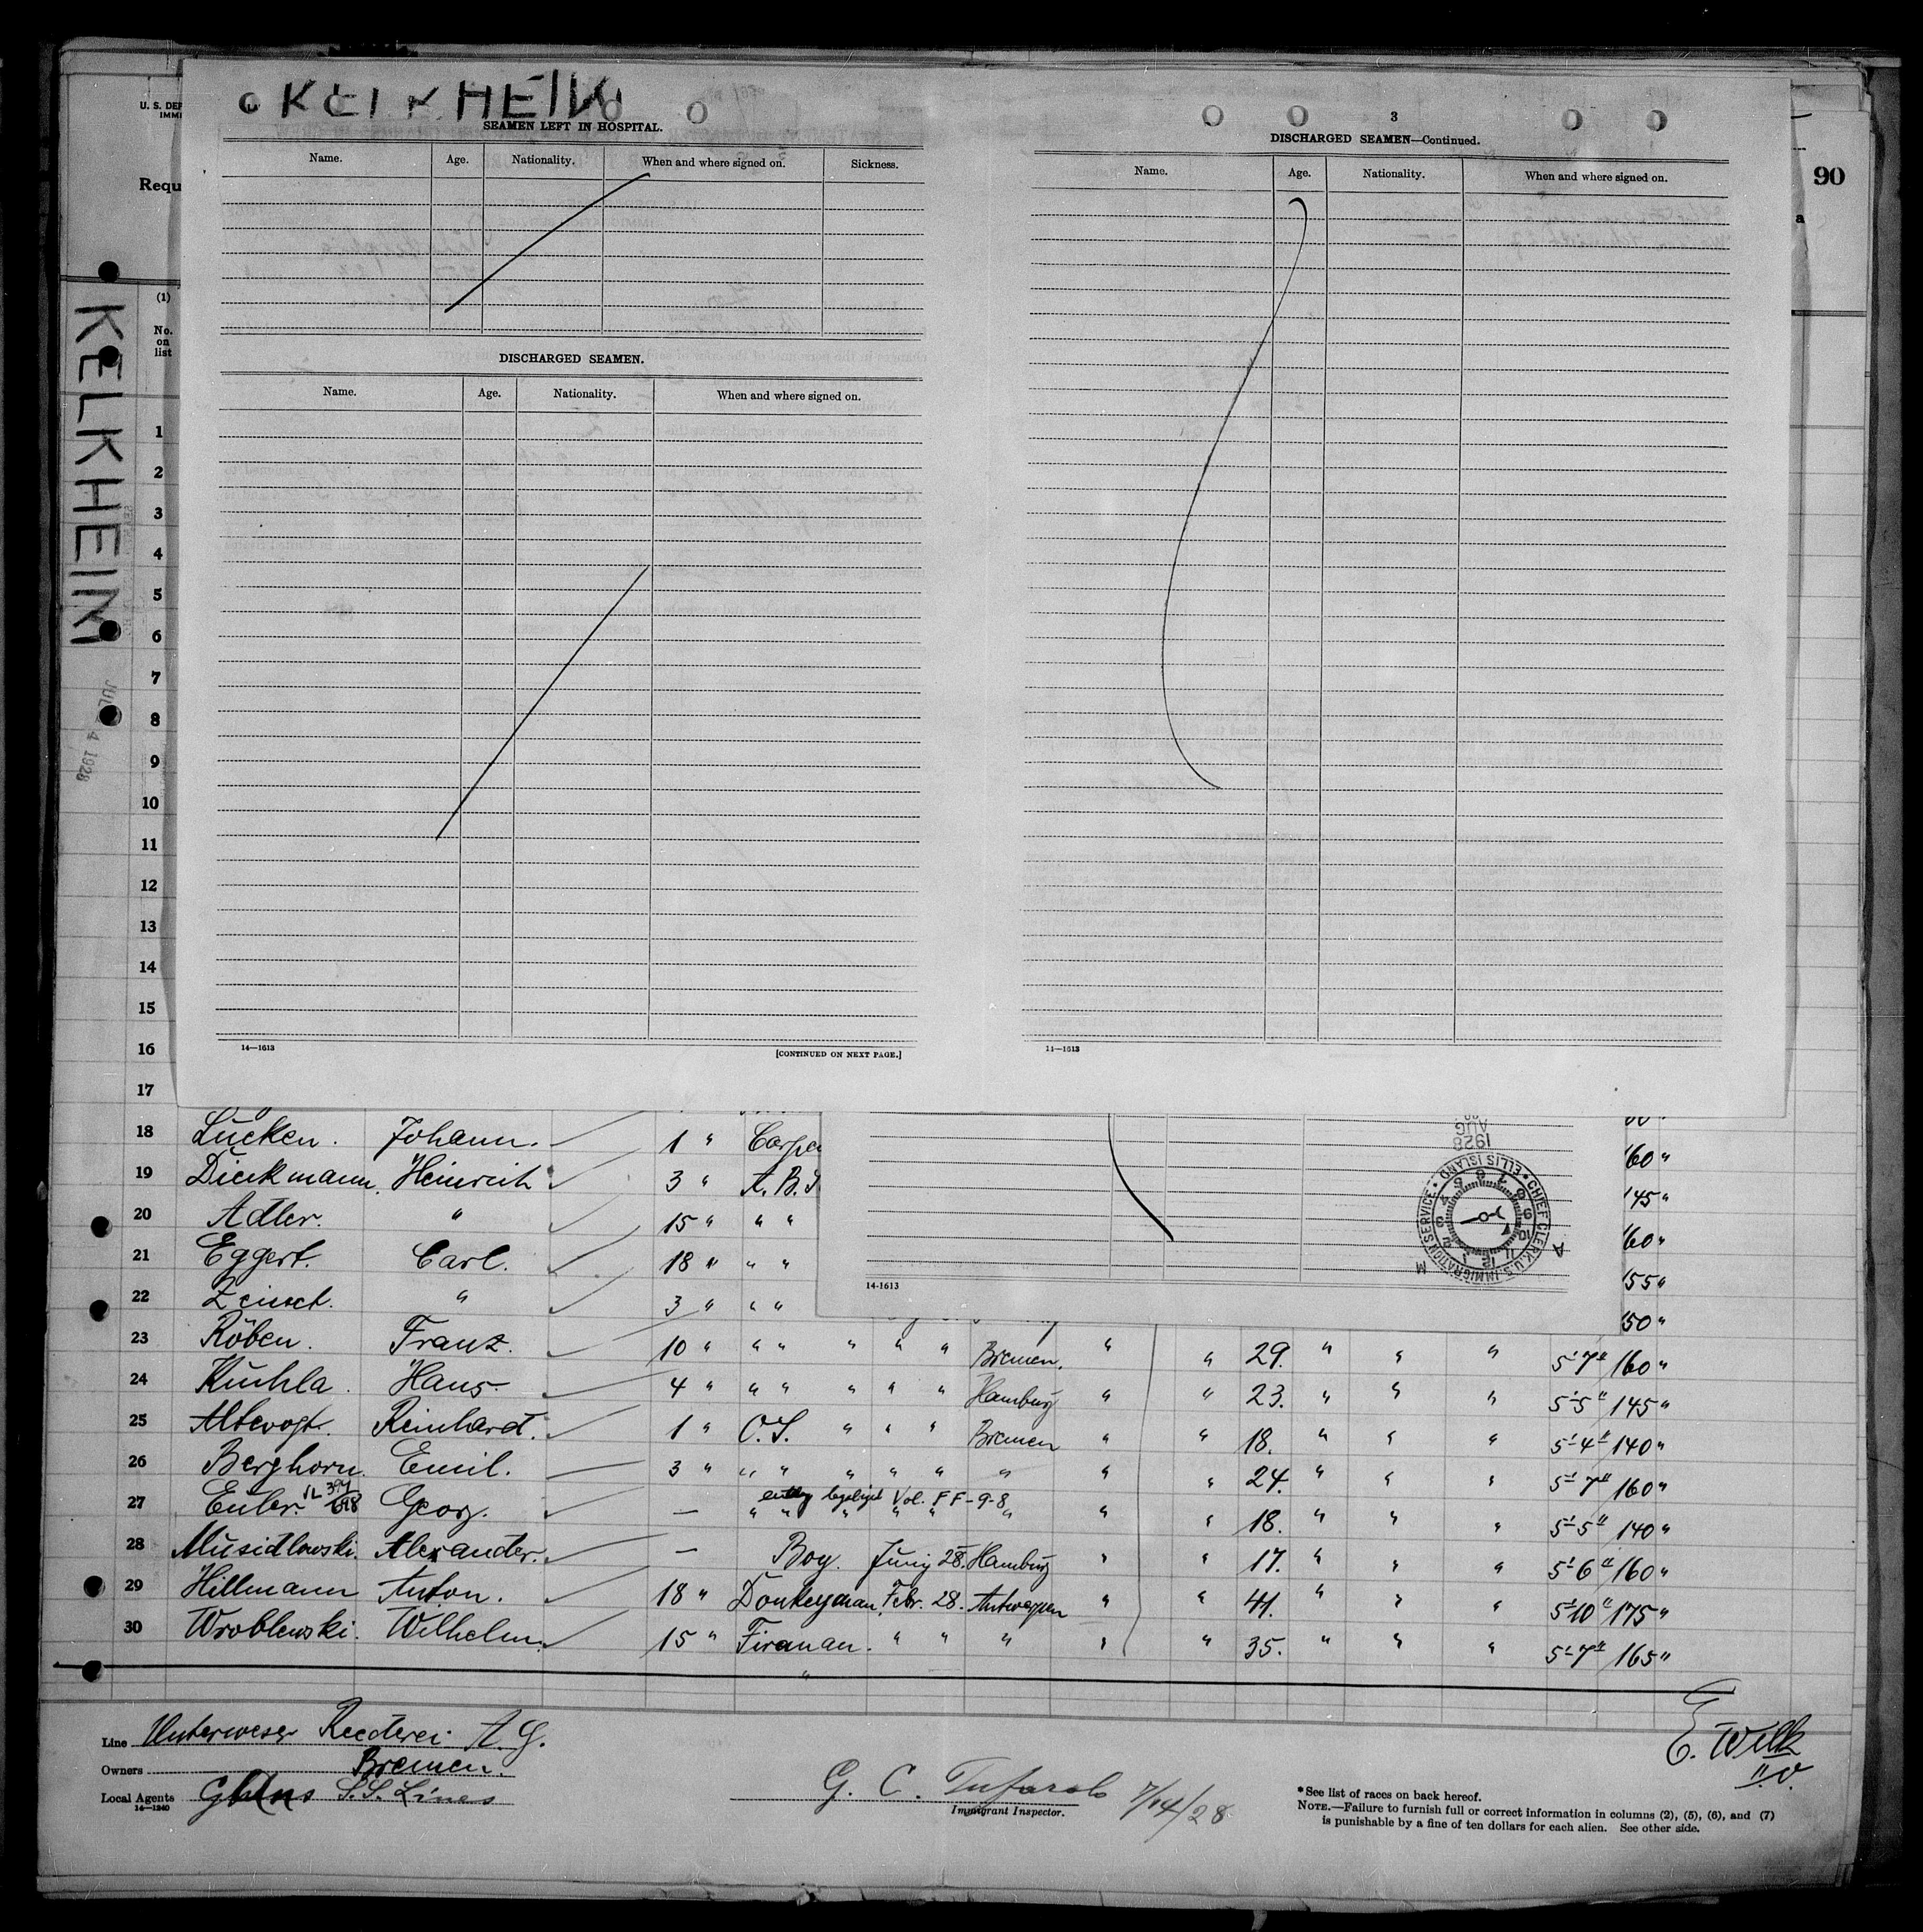 KELKHEIM
SEAMEN LEFT IN HOSPITAL.
Name. Age. Nationality. When and where signed on. Sickness.
DISCHARGED SEAMEN.
Name. Age. Nationality. When and where signed on.
14—1613
[CONTINUED ON NEXT PAGE.]
3
DISCHARGED SEAMEN—Continued.
Name. Age. Nationality. When and where signed on.
14—1613
U. S. DEP
IMMI
Requ
90
a
KELKHEIM
JUL 4 1928
(1)
No. on list
1
2
3
4
5
6
7
8
9
10
11
12
13
14
15
16
17
18 Lücken. Johann. 1 " Carpe
19 Dieckmann. Heinrich 3 " A. B. S 160 "
20 Adler. " 15 " " " 145 "
21 Eggert. Carl. 18 " " " 160 "
22 " 3 " " " 155 "
150 "
23 Röben. Franz. 10 " " " " " " Bremen. " " 29. " " " 5'-7" 160 "
24 Kuchla. Hans. 4 " " " " " " Hamburg " " 23. " " " 5'-5" 145 "
25 Altevogt. Reinhard. 1 " O.S. " " " Bremen " " 18. " " " 5'-4" 140 "
26 Berghorn. Emil. 3 " " " " " " " " " 24. " " " 5'-7" 160 "
Vol. FF-9-8
27 Euler. Georg. — " " " " " " " " 18. " " " 5'-5" 140 "
28 Musidlowski. Alexander. — Boy. Juny 28. Hamburg " " 17. " " " 5'-6" 160 "
29 Hillmann Anton. 18 " Donkeyman. Febr. 28. Antwerpen " " 41. " " " 5'10" 175 "
30 Wroblewski. Wilhelm. 15 " Fireman. " " " " " 35. " " " 5'-7" 165 "
14-1613
AUG
1928
CHIEF CLERK, U.S. IMMIGRATION SERVICE • ELLIS ISLAND •
A
M
Line Unterweser Reederei A. G.
Owners Bremen.
Local Agents S.S. Lines
14—1240
G. C. Tufarolo 7/14/28
Immigrant Inspector.
E. Wilk
II.O.
* See list of races on back hereof.
NOTE.—Failure to furnish full or correct information in columns (2), (5), (6), and (7)
is punishable by a fine of ten dollars for each alien. See other side.